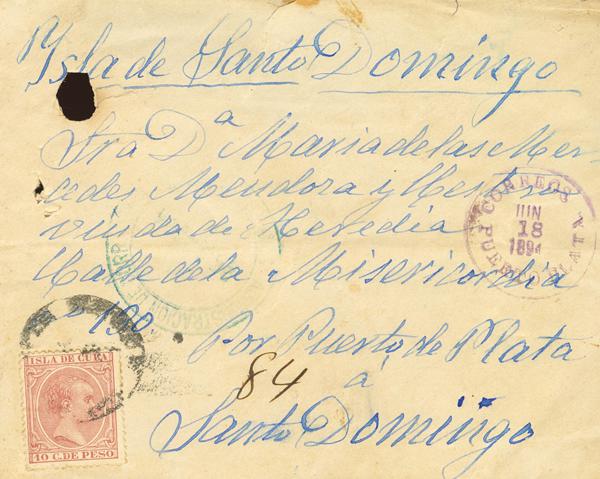 Isla de Santo Domingo
Sra Dª Maria de las Mer-
cedes Mendoza y Mestre
viuda de Heredia
Calle de la Misericordia
Por Puerto de Plata
84
a
Santo Domingo
CORREOS
JUN
18
1894
PUERTO PLATA
ISLA DE CUBA
10 C. DE PESO